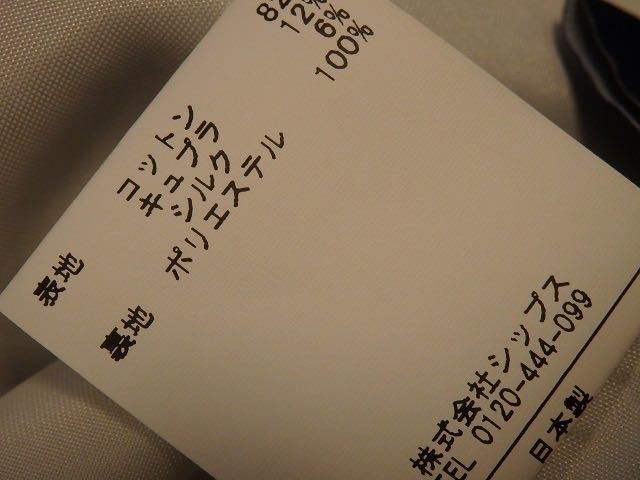 表地 コットン 82%
キュプラ 12%
シルク 6%
裏地 ポリエステル 100%
株式会社シップス
TEL 0120-444-099
日本製